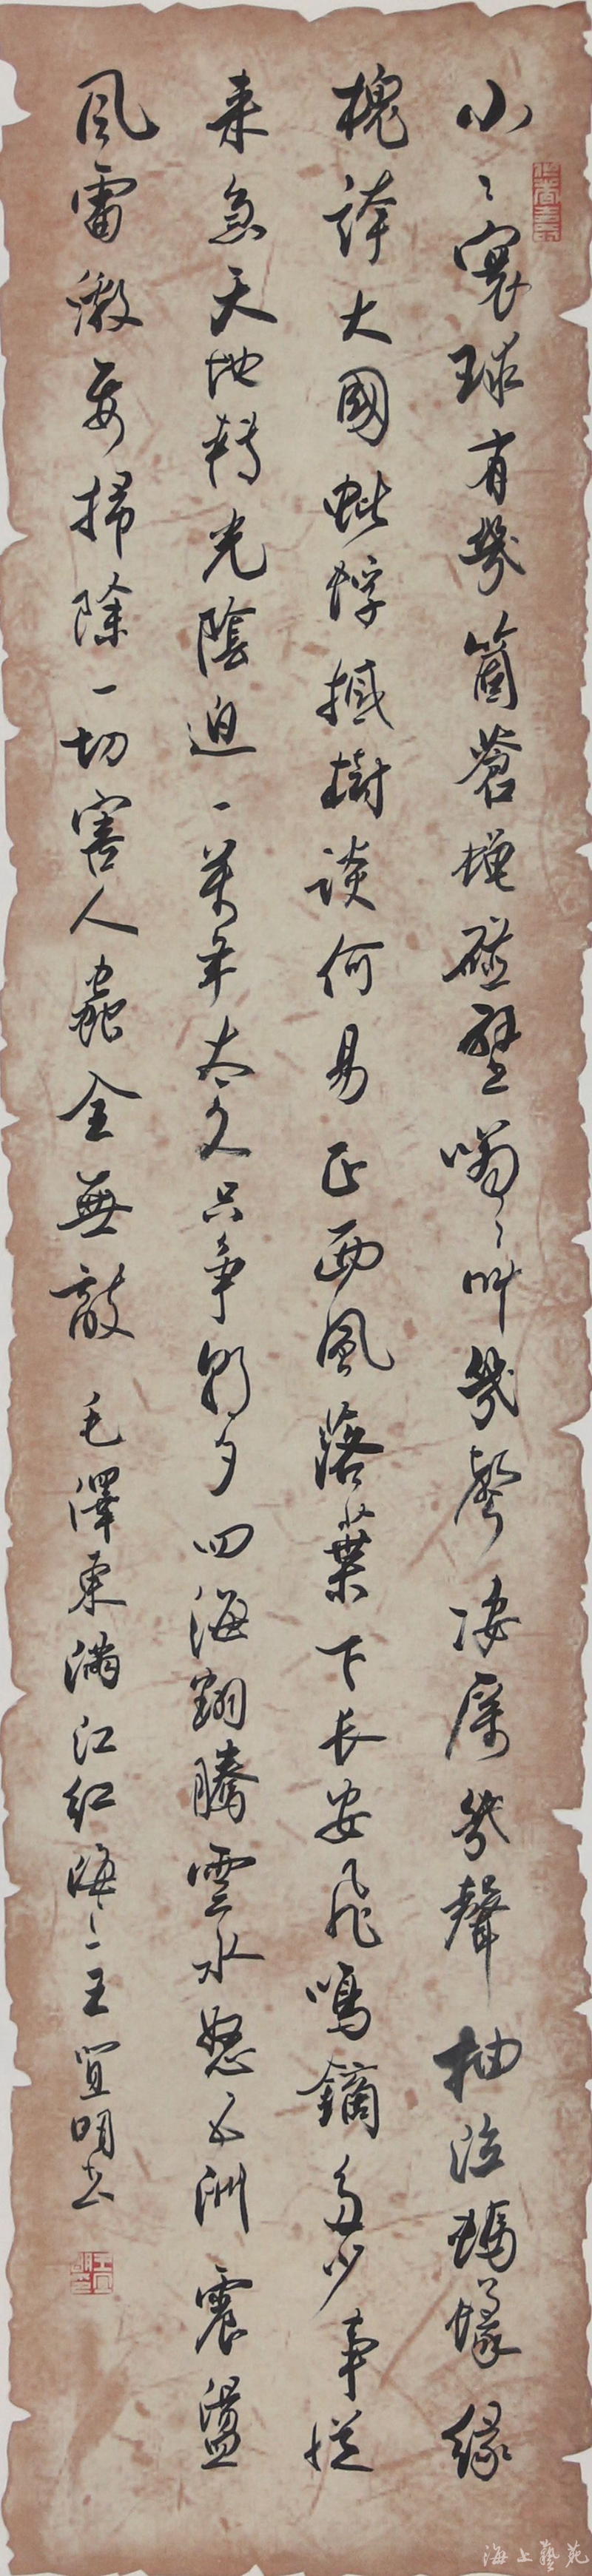 小〻寰球有幾箇蒼蠅碰壁嗡〻叫幾聲凄厲幾聲抽泣螞蟻緣
槐誇大國蚍蜉撼樹談何易正西風落葉下長安飛鳴鏑多少事從
来急天地轉光陰迫一萬年太久只争朝夕四海翻騰雲水怒五洲震盪
風雷激要掃除一切害人蟲全無敵 毛澤東滿江紅 王宜明书
海上藝苑